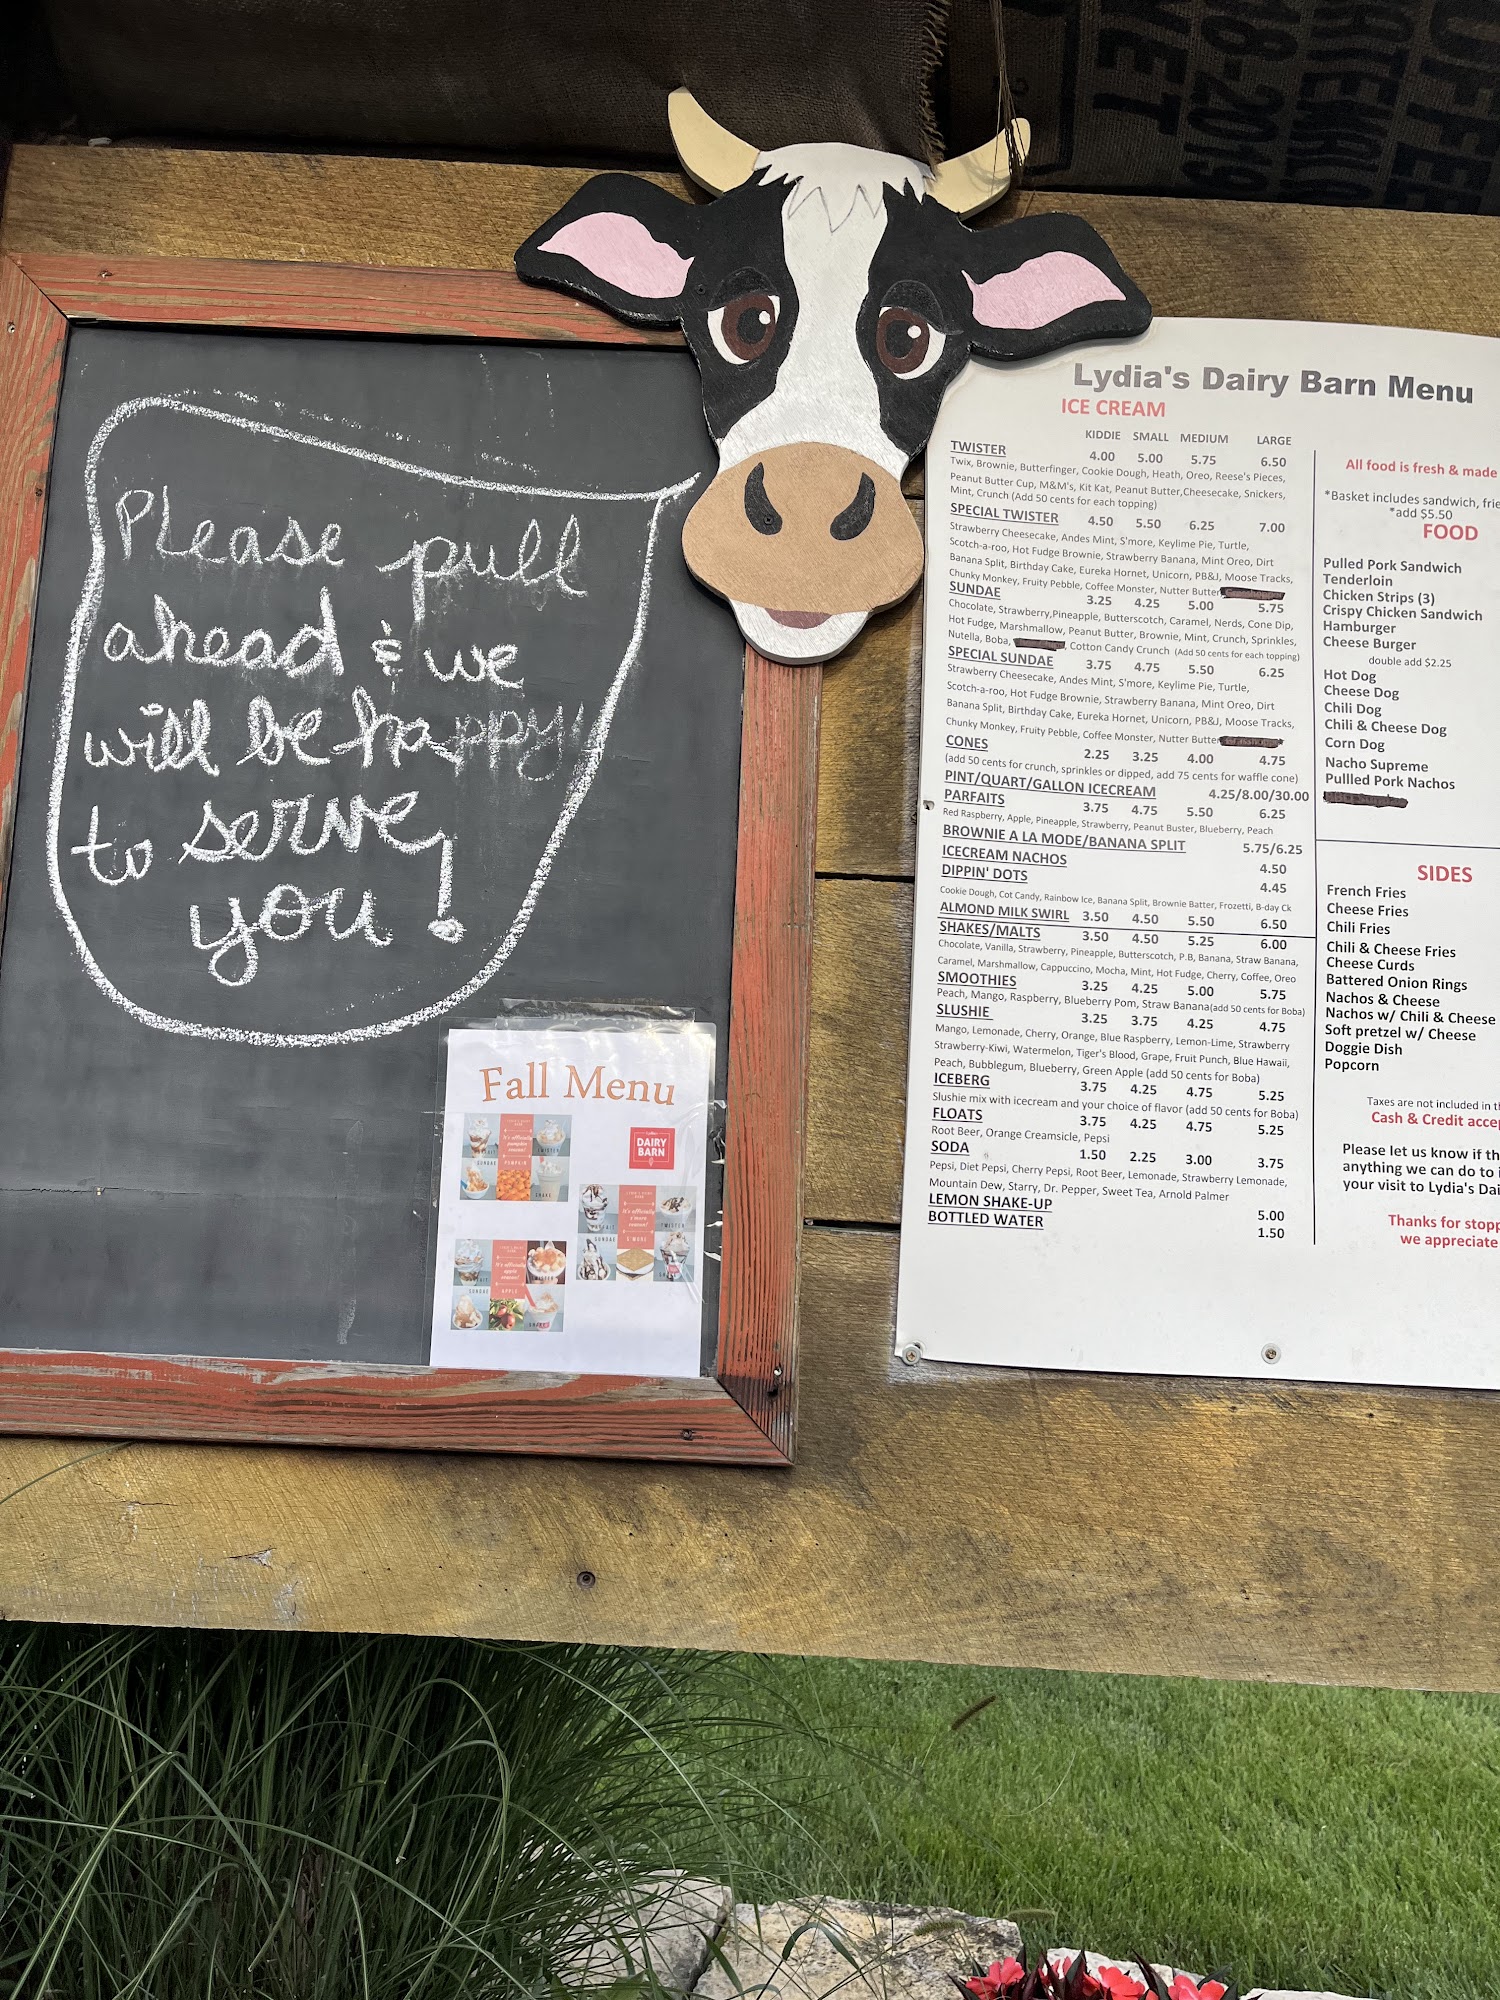 Please pull
ahead & we
will be happy
to serve
you!
Fall Menu
DAIRY
BARN
Lydia's Dairy Barn Menu
ICE CREAM
KIDDIE SMALL MEDIUM LARGE
TWISTER 4.00 5.00 5.75 6.50
Twix, Brownie, Butterfinger, Cookie Dough, Heath, Oreo, Reese's Pieces,
Peanut Butter Cup, M&M's, Kit Kat, Peanut Butter,Cheesecake, Snickers,
Mint, Crunch (Add 50 cents for each topping)
SPECIAL TWISTER 4.50 5.50 6.25 7.00
Strawberry Cheesecake, Andes Mint, S'more, Keylime Pie, Turtle,
Scotch-a-roo, Hot Fudge Brownie, Strawberry Banana, Mint Oreo, Dirt
Banana Split, Birthday Cake, Eureka Hornet, Unicorn, PB&J, Moose Tracks,
Chunky Monkey, Fruity Pebble, Coffee Monster, Nutter Butter
SUNDAE 3.25 4.25 5.00 5.75
Chocolate, Strawberry,Pineapple, Butterscotch, Caramel, Nerds, Cone Dip,
Hot Fudge, Marshmallow, Peanut Butter, Brownie, Mint, Crunch, Sprinkles,
Nutella, Boba, , Cotton Candy Crunch (Add 50 cents for each topping)
SPECIAL SUNDAE 3.75 4.75 5.50 6.25
Strawberry Cheesecake, Andes Mint, S'more, Keylime Pie, Turtle,
Scotch-a-roo, Hot Fudge Brownie, Strawberry Banana, Mint Oreo, Dirt
Banana Split, Birthday Cake, Eureka Hornet, Unicorn, PB&J, Moose Tracks,
Chunky Monkey, Fruity Pebble, Coffee Monster, Nutter Butter
CONES 2.25 3.25 4.00 4.75
(add 50 cents for crunch, sprinkles or dipped, add 75 cents for waffle cone)
PINT/QUART/GALLON ICECREAM 4.25/8.00/30.00
PARFAITS 3.75 4.75 5.50 6.25
Red Raspberry, Apple, Pineapple, Strawberry, Peanut Buster, Blueberry, Peach
BROWNIE A LA MODE/BANANA SPLIT 5.75/6.25
ICECREAM NACHOS 4.50
DIPPIN' DOTS 4.45
Cookie Dough, Cot Candy, Rainbow Ice, Banana Split, Brownie Batter, Frozetti, B-day Ck
ALMOND MILK SWIRL 3.50 4.50 5.50 6.50
SHAKES/MALTS 3.50 4.50 5.25 6.00
Chocolate, Vanilla, Strawberry, Pineapple, Butterscotch, P.B, Banana, Straw Banana,
Caramel, Marshmallow, Cappuccino, Mocha, Mint, Hot Fudge, Cherry, Coffee, Oreo
SMOOTHIES 3.25 4.25 5.00 5.75
Peach, Mango, Raspberry, Blueberry Pom, Straw Banana(add 50 cents for Boba)
SLUSHIE 3.25 3.75 4.25 4.75
Mango, Lemonade, Cherry, Orange, Blue Raspberry, Lemon-Lime, Strawberry
Strawberry-Kiwi, Watermelon, Tiger's Blood, Grape, Fruit Punch, Blue Hawaii,
Peach, Bubblegum, Blueberry, Green Apple (add 50 cents for Boba)
ICEBERG 3.75 4.25 4.75 5.25
Slushie mix with icecream and your choice of flavor (add 50 cents for Boba)
FLOATS 3.75 4.25 4.75 5.25
Root Beer, Orange Creamsicle, Pepsi
SODA 1.50 2.25 3.00 3.75
Pepsi, Diet Pepsi, Cherry Pepsi, Root Beer, Lemonade, Strawberry Lemonade,
Mountain Dew, Starry, Dr. Pepper, Sweet Tea, Arnold Palmer
LEMON SHAKE-UP 5.00
BOTTLED WATER 1.50
All food is fresh & made
*Basket includes sandwich, frie
*add $5.50
FOOD
Pulled Pork Sandwich
Tenderloin
Chicken Strips (3)
Crispy Chicken Sandwich
Hamburger
Cheese Burger
double add $2.25
Hot Dog
Cheese Dog
Chili Dog
Chili & Cheese Dog
Corn Dog
Nacho Supreme
Pullled Pork Nachos
SIDES
French Fries
Cheese Fries
Chili Fries
Chili & Cheese Fries
Cheese Curds
Battered Onion Rings
Nachos & Cheese
Nachos w/ Chili & Cheese
Soft pretzel w/ Cheese
Doggie Dish
Popcorn
Taxes are not included in th
Cash & Credit accep
Please let us know if th
anything we can do to i
your visit to Lydia's Dai
Thanks for stopp
we appreciate